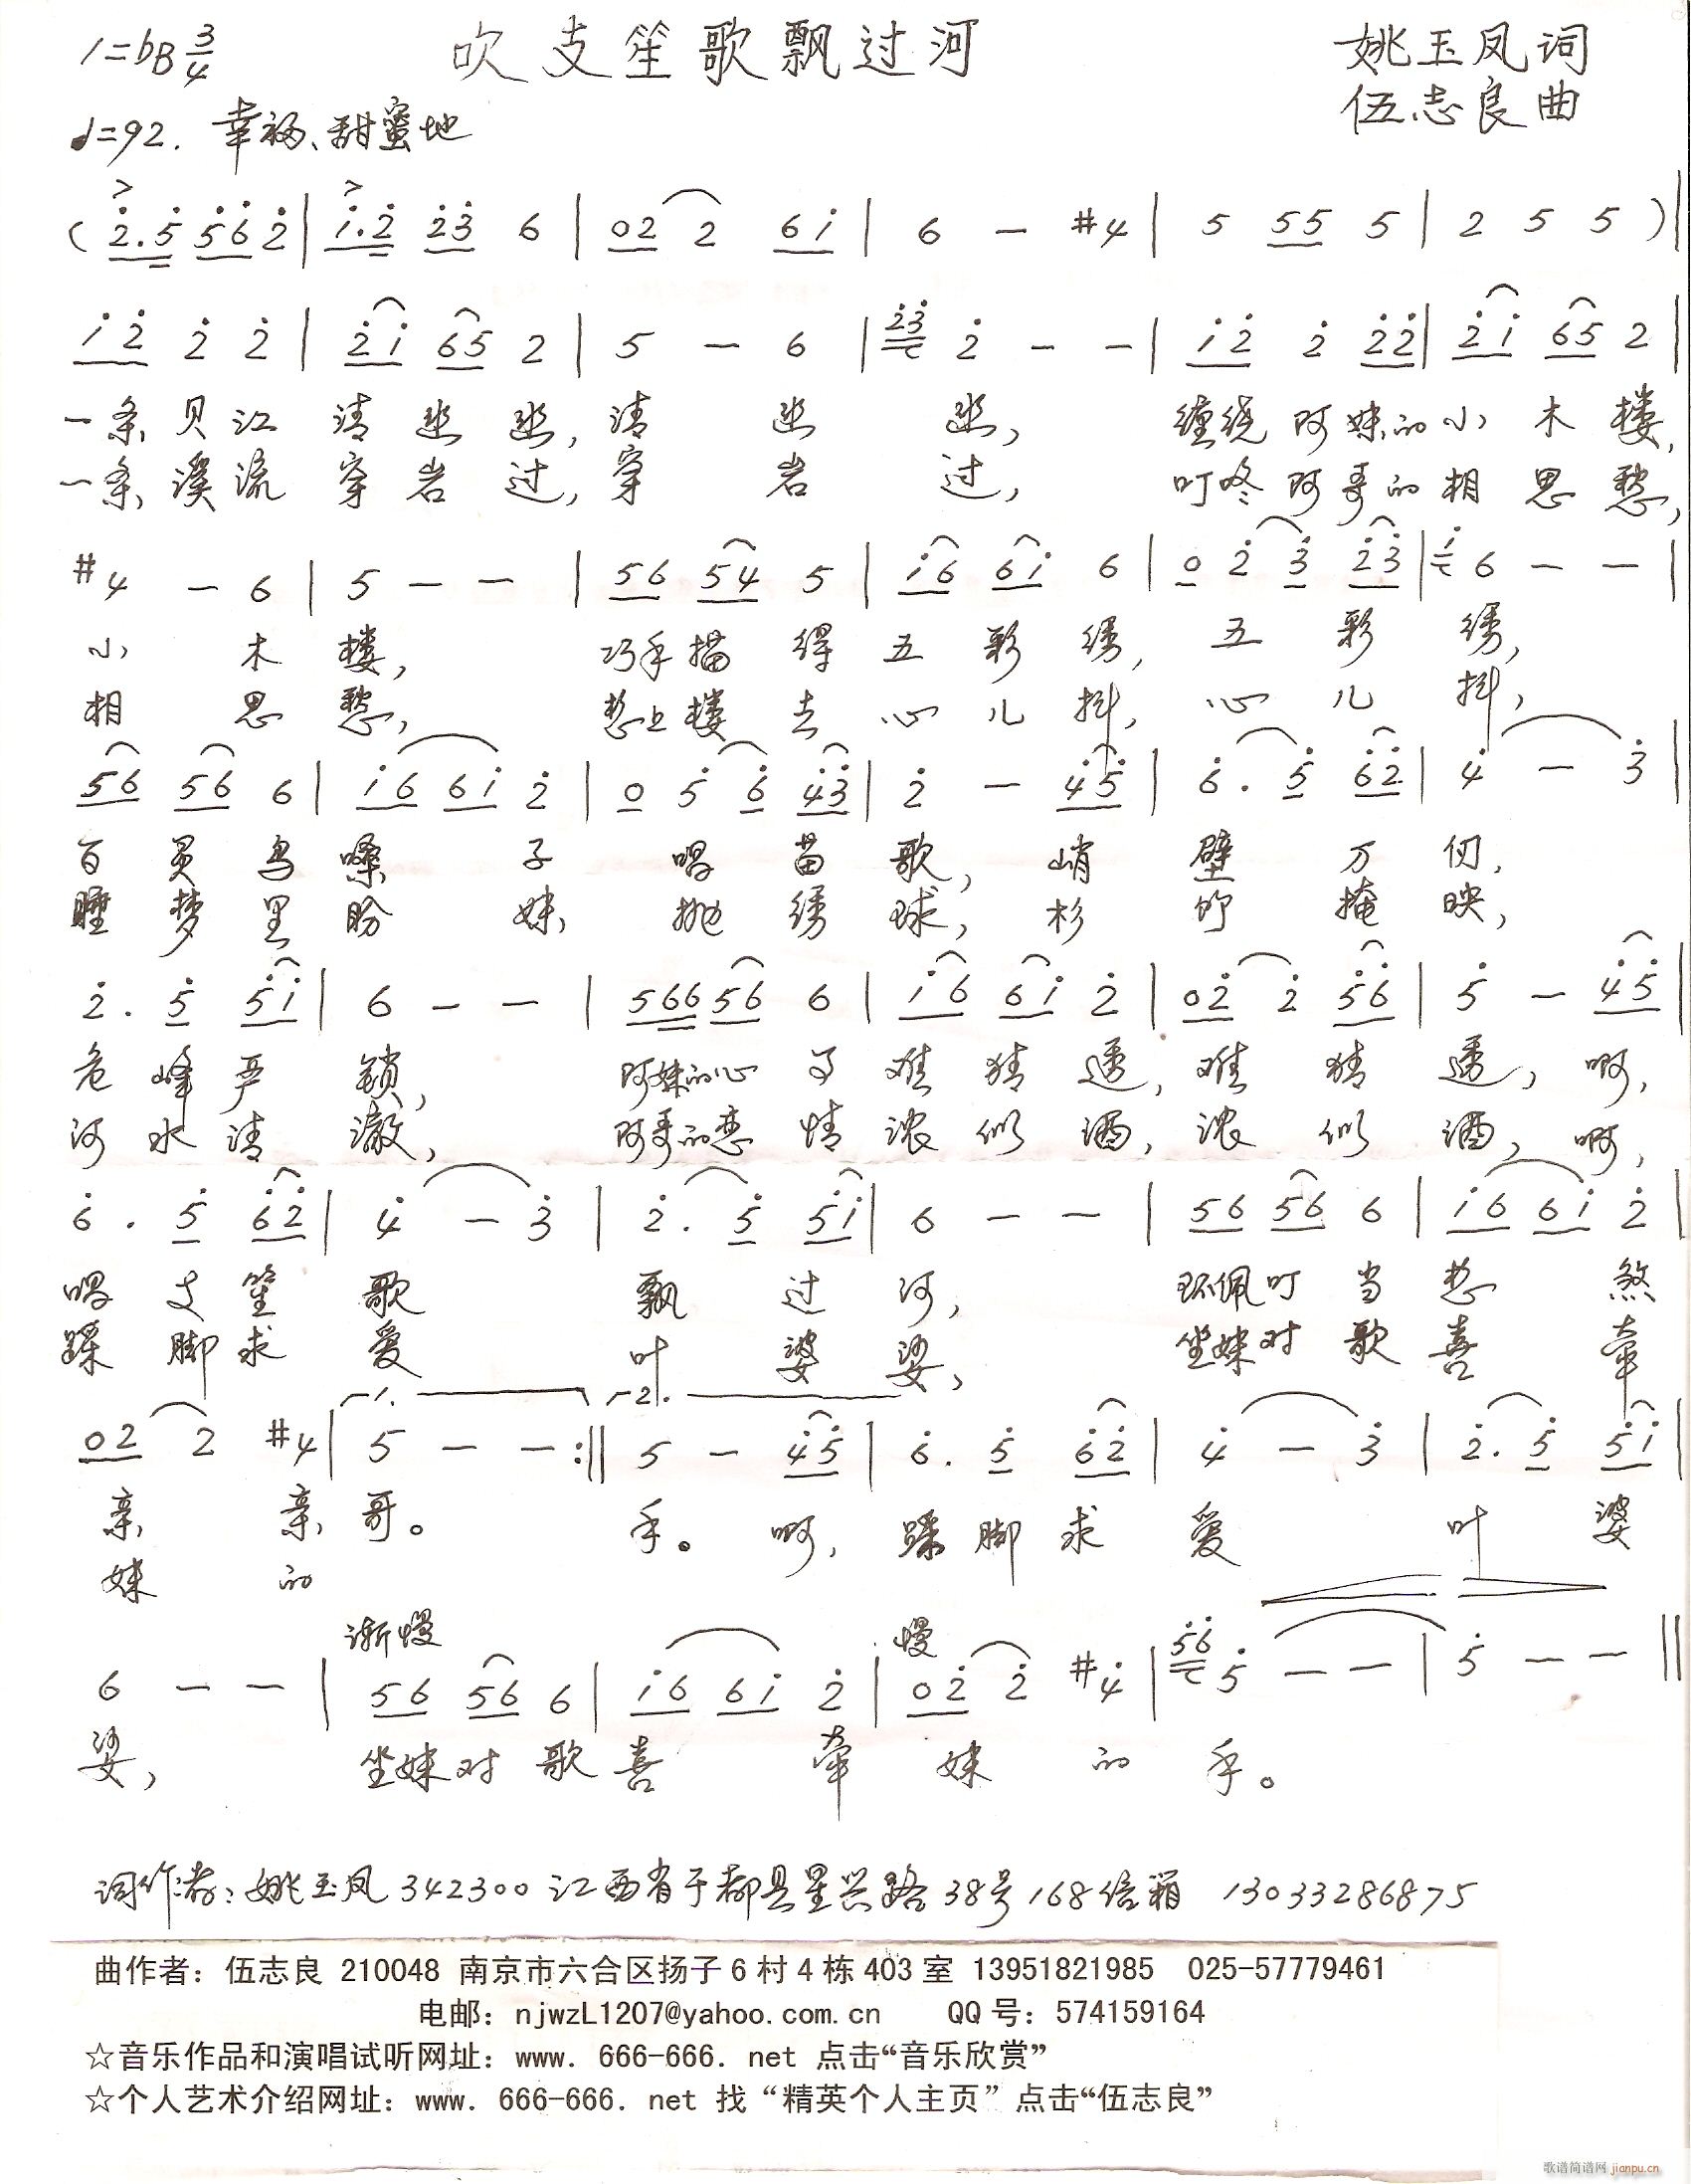 1=bB 3/4 吹支笙歌飘过河 姚玉凤词
♩=92. 幸福、甜蜜地 伍志良曲
(2.5 562|1.2 23 6|02 2 61|6 — #4|5 55 5|2 5 5)|
12 2 2|21 65 2|5 — 6|23 2 — —|12 2 22|21 65 2|
一条贝江清悠悠,清悠悠,缠绕阿妹的小木楼,
一条溪流穿岩过,穿岩过,叮咚阿哥的相思愁,
#4 — 6|5 — —|56 54 5|16 61 6|0 2 3 23|1 6 — —|
小木楼,巧手描得五彩绣,五彩绣,
相思愁,愁上楼去心儿抖,心儿抖,
56 56 6|16 61 2|0 5 6 43|2 — 45|6. 5 62|4 — 3|
百灵鸟嗓子唱苗歌,峭壁万仞,
睡梦里盼妹抛绣球,杉竹掩映,
2. 5 51|6 — —|566 56 6|16 61 2|02 2 56|5 — 45|
危峰严锁,阿妹的心事难猜透,难猜透,啊,
河水清澈,阿哥的恋情浓似酒,浓似酒,啊,
6. 5 62|4 — 3|2. 5 51|6 — —|56 56 6|16 61 2|
唱支笙歌飘过河,环佩叮当愁煞
踩脚求爱叶婆娑,坐妹对歌喜牵
1. 2.
02 2 #4|5 — —:‖5 — 45|6. 5 62|4 — 3|2. 5 51|
亲亲哥。手。啊,踩脚求爱叶婆
妹的
渐慢 慢
6 — —|56 56 6|16 61 2|02 2 #4|56 5 — —|5 — —‖
娑,坐妹对歌喜牵妹的手。
词作者:姚玉凤 342300 江西省于都县星兴路38号168信箱 13033286875
曲作者：伍志良 210048 南京市六合区扬子6村4栋403室 13951821985 025-57779461
电邮：njwzL1207@yahoo.com.cn QQ号：574159164
☆音乐作品和演唱试听网址：www. 666-666. net 点击“音乐欣赏”
☆个人艺术介绍网址：www. 666-666. net 找“精英个人主页”点击“伍志良”
歌谱简谱网 jianpu.cn